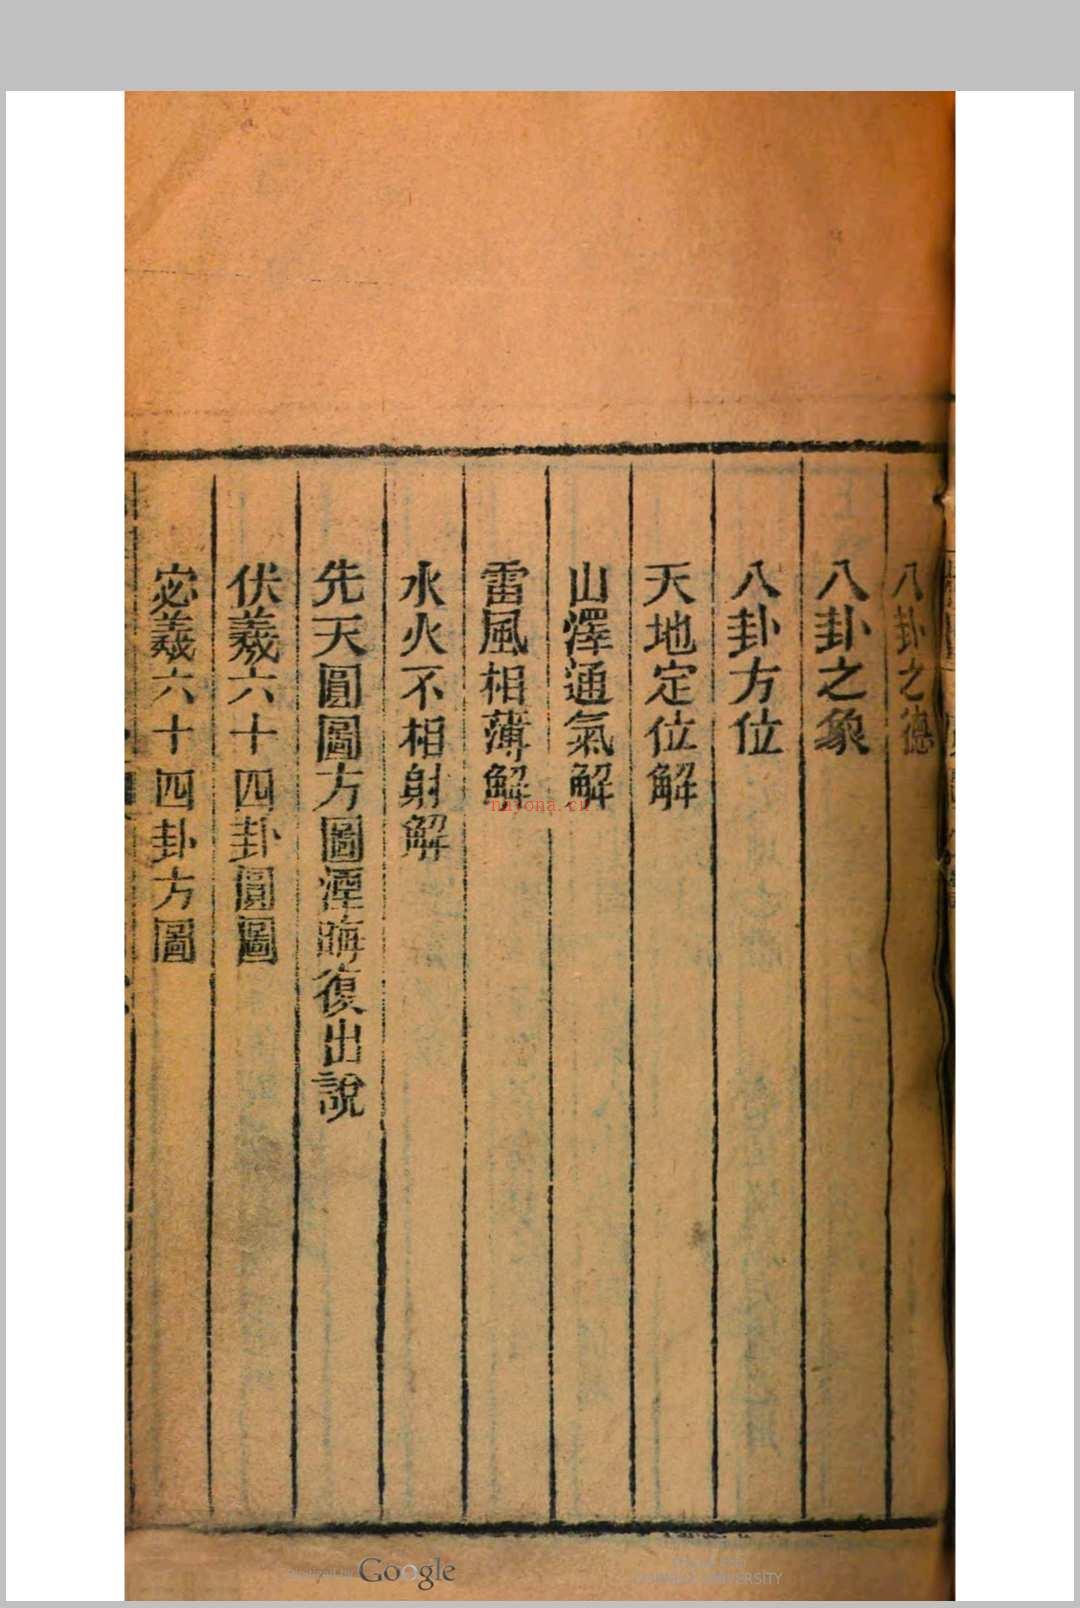 八卦之德
八卦之象
八卦方位
天地定位解
山澤通氣解
雷風相薄解
水火不相射解
先天圓圖方圖湮晦復出說
伏羲六十四卦圓圖
宓羲六十四卦方圖
nayona.cn
Digitized by Google
CORNELL UNIVERSITY